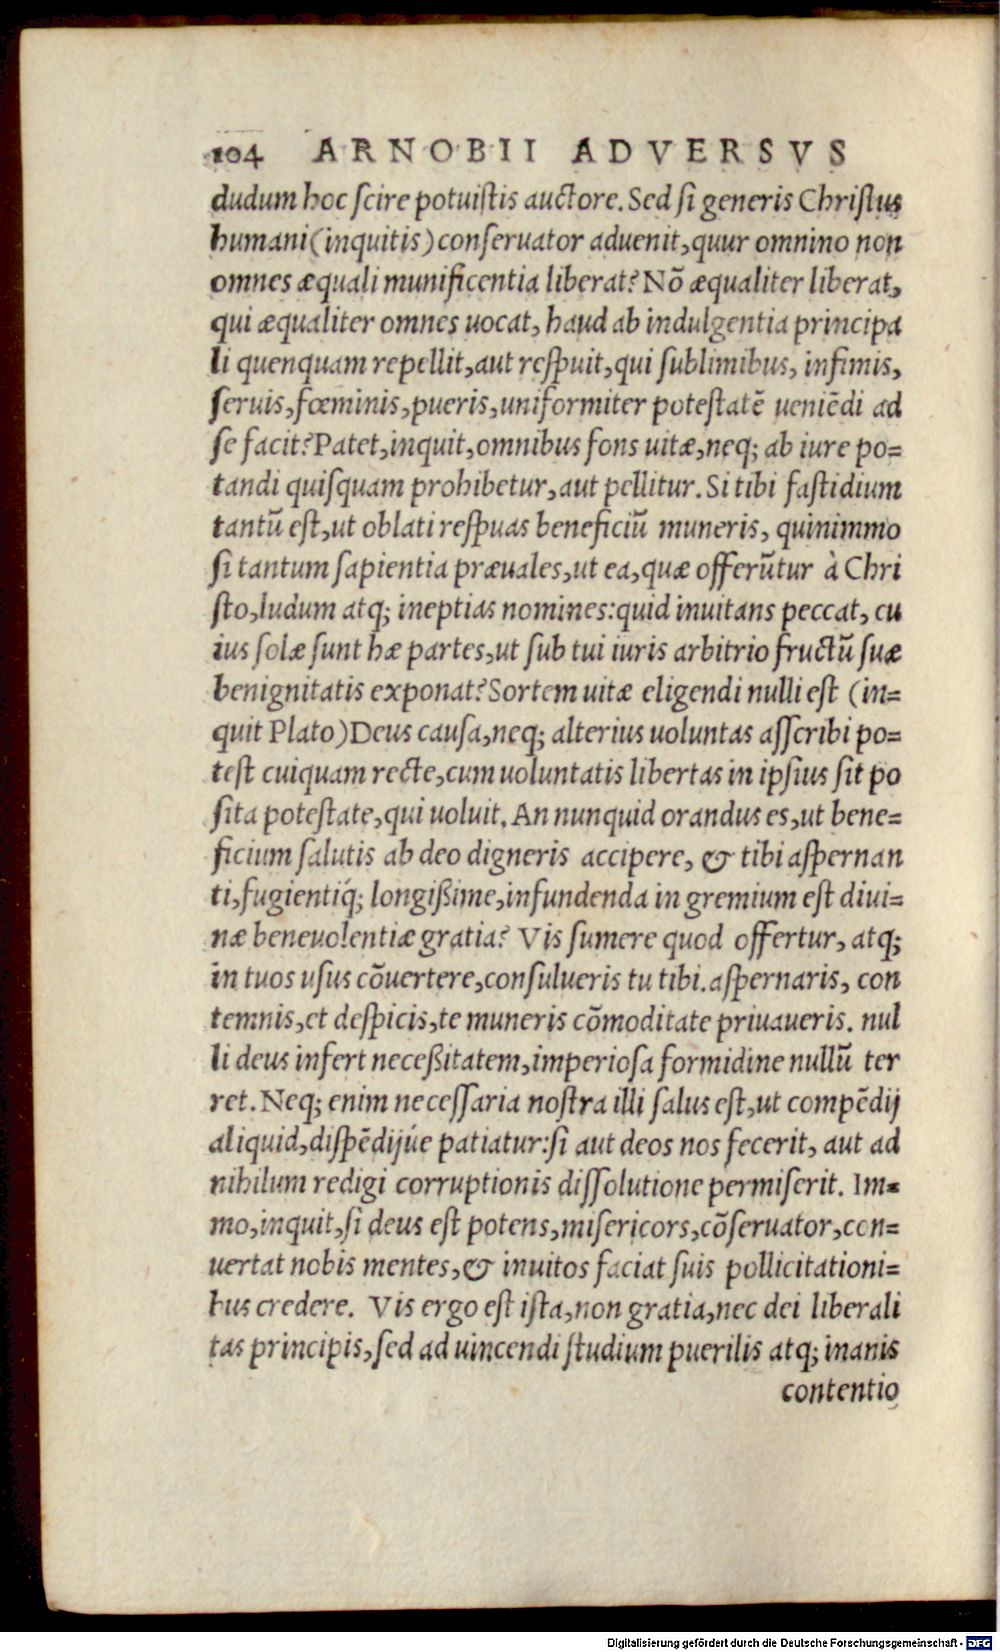 104 ARNOBII ADVERSVS
dudum hoc scire potuistis auctore. Sed si generis Christus
humani (inquitis) conseruator aduenit, quur omnino non
omnes æquali munificentia liberat? Nō æqualiter liberat,
qui æqualiter omnes uocat, haud ab indulgentia principa
li quenquam repellit, aut respuit, qui sublimibus, infimis,
seruis, fœminis, pueris, uniformiter potestatē ueniēdi ad
se facit? Patet, inquit, omnibus fons uitæ, neq; ab iure po=
tandi quisquam prohibetur, aut pellitur. Si tibi fastidium
tantū est, ut oblati respuas beneficiū muneris, quinimmo
si tantum sapientia præuales, ut ea, quæ offerūtur à Chri
sto, ludum atq; ineptias nomines: quid inuitans peccat, cu
ius solæ sunt hæ partes, ut sub tui iuris arbitrio fructū suæ
benignitatis exponat? Sortem uitæ eligendi nulli est (in=
quit Plato) Deus causa, neq; alterius uoluntas asscribi po=
test cuiquam recte, cum uoluntatis libertas in ipsius sit po
sita potestate, qui uoluit. An nunquid orandus es, ut bene=
ficium salutis ab deo digneris accipere, & tibi aspernan
ti, fugientiq́; longißime, infundenda in gremium est diui=
næ beneuolentiæ gratia? Vis sumere quod offertur, atq;
in tuos usus cōuertere, consulueris tu tibi. aspernaris, con
temnis, et despicis, te muneris cōmoditate priuaueris. nul
li deus infert neceßitatem, imperiosa formidine nullū ter
ret. Neq; enim necessaria nostra illi salus est, ut compēdij
aliquid, dispēdijúe patiatur: si aut deos nos fecerit, aut ad
nihilum redigi corruptionis dissolutione permiserit. Im=
mo, inquit, si deus est potens, misericors, cōseruator, con=
uertat nobis mentes, & inuitos faciat suis pollicitationi=
bus credere. Vis ergo est ista, non gratia, nec dei liberali
tas principis, sed ad uincendi studium puerilis atq; inanis
contentio
Digitalisierung gefördert durch die Deutsche Forschungsgemeinschaft - DFG